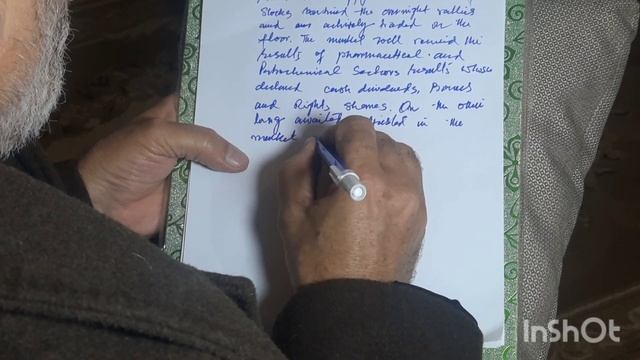 Stocks the overnight rallies
and was actively traded on the
floor. The market well the
results of pharmaceutical and
Petrochemical Sectors results whose
declared cash dividends, Bonuses
and Rights shares. On the other
long awaited in the
market
InShOt